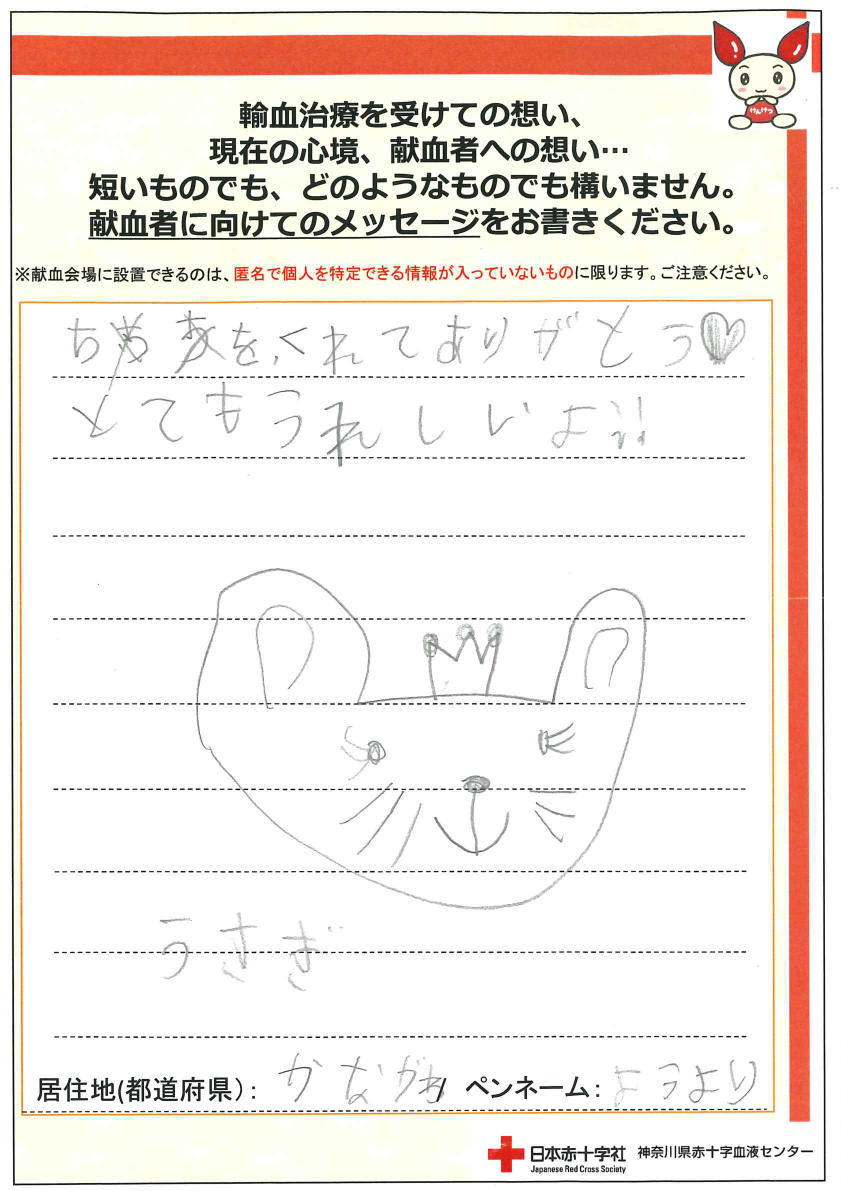 けんけつ
輸血治療を受けての想い、
現在の心境、献血者への想い…
短いものでも、どのようなものでも構いません。
献血者に向けてのメッセージをお書きください。
※献血会場に設置できるのは、匿名で個人を特定できる情報が入っていないものに限ります。ご注意ください。
ちをくれてありがとう♡
とてもうれしいよ!!
うさぎ
居住地(都道府県): かながわ ペンネーム: ようより
日本赤十字社 神奈川県赤十字血液センター
Japanese Red Cross Society